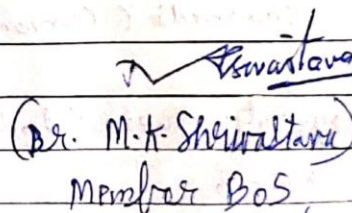 Shrivastava
(Dr. M.K. Shrivastava)
Member BoS